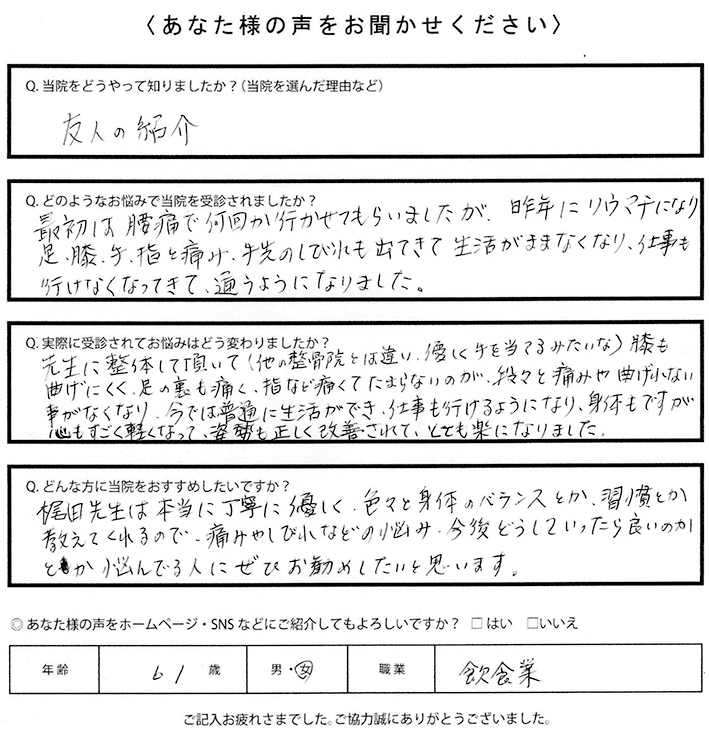 〈あなた様の声をお聞かせください〉
Q. 当院をどうやって知りましたか？（当院を選んだ理由など）
友人の紹介
Q. どのようなお悩みで当院を受診されましたか？
最初は腰痛で何回か行かせてもらいましたが、昨年にリウマチになり
足、膝、手、指と痛み、手先のしびれも出てきて生活がままなくなり、仕事も
行けなくなってきて、通うようになりました。
Q. 実際に受診されてお悩みはどう変わりましたか？
先生に整体して頂いて（他の整骨院とは違い、優しく手を当てるみたいな）膝も
曲げにくく、足の裏も痛く、指など痛くてたまらないのが、段々と痛みや曲げれない
事がなくなり、今では普通に生活ができ、仕事も行けるようになり、身体もですが
心もすごく軽くなって、姿勢も正しく改善されて、とても楽になりました。
Q. どんな方に当院をおすすめしたいですか？
梶田先生は本当に丁寧に優しく、色々と身体のバランスとか、習慣とか
教えてくれるので、痛みやしびれなどの悩み、今後どうしていったら良いのか
とか悩んでる人にぜひお勧めしたいと思います。
◎ あなた様の声をホームページ・SNS などにご紹介してもよろしいですか？ □ はい □いいえ
年齢 61 歳 男・女 職業 飲食業
ご記入お疲れさまでした。ご協力誠にありがとうございました。